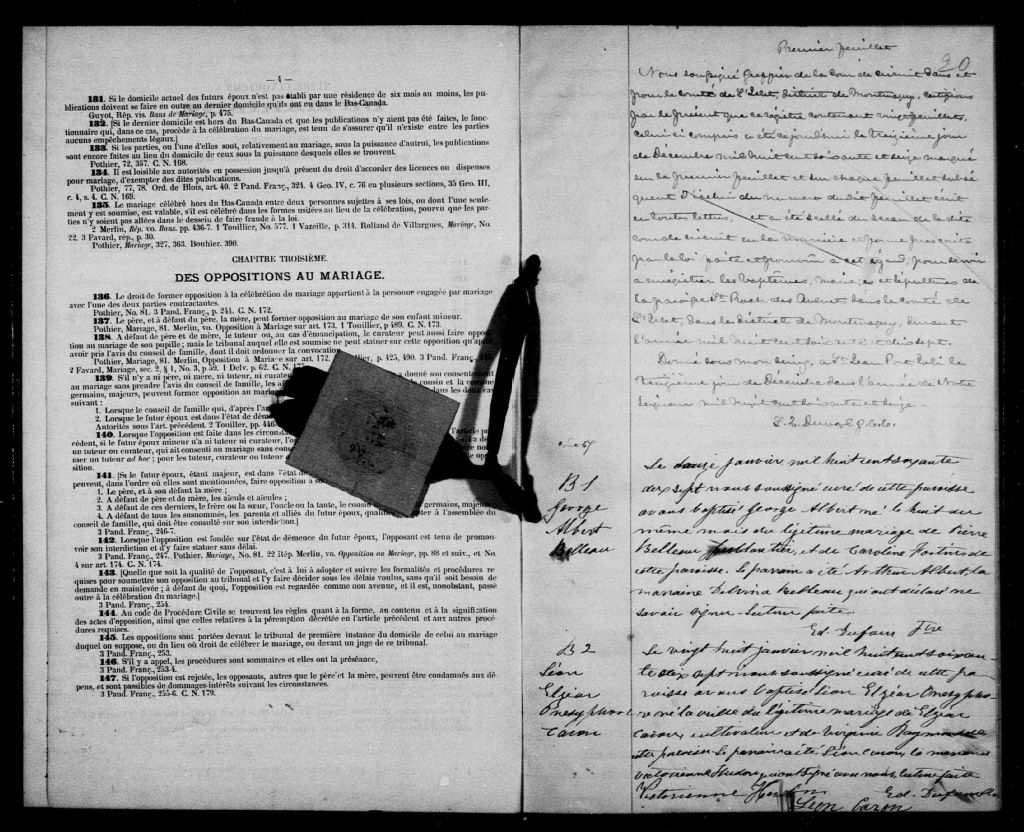 — 4 —
131. Si le domicile actuel des futurs époux n'est pas établi par une résidence de six mois au moins, les pu-
blications doivent se faire en outre au dernier domicile qu'ils ont eu dans le Bas-Canada.
Guyot, Rép. vis. Bans de Mariage, p. 475.
132. [Si le dernier domicile est hors du Bas-Canada et que les publications n'y aient pas été faites, le fonc-
tionnaire qui, dans ce cas, procède à la célébration du mariage, est tenu de s'assurer qu'il n'existe entre les parties
aucuns empêchements légaux.]
133. Si les parties, ou l'une d'elles sont, relativement au mariage, sous la puissance d'autrui, les publications
sont encore faites au lieu du domicile de ceux sous la puissance desquels elles se trouvent.
Pothier, 72, 357. C. N. 168.
134. Il est loisible aux autorités en possession jusqu'à présent du droit d'accorder des licences ou dispenses
pour mariage, d'exempter des dites publications.
Pothier, 77, 78. Ord. de Blois, art. 40. 2 Pand. Franç., 324. 4 Geo. IV, c. 76 en plusieurs sections, 35 Geo. III,
c. 4, s. 4. C. N. 169.
135. Le mariage célébré hors du Bas-Canada entre deux personnes sujettes à ses lois, ou dont l'une seule-
ment y est soumise, est valable, s'il est célébré dans les formes usitées au lieu de la célébration, pourvu que les par-
ties n'y soient pas allées dans le dessein de faire fraude à la loi.
2 Merlin, Rép. vo. Bans. pp. 436-7. 1 Touillier, No. 577. 1 Vazeille, p. 314. Rolland de Villargues, Mariage, No.
22. 3 Favard, rép., p. 30.
Pothier, Mariage, 327, 363. Bouhier. 390.
CHAPITRE TROISIÈME.
DES OPPOSITIONS AU MARIAGE.
136. Le droit de former opposition à la célébration du mariage appartient à la personne engagée par mariage
avec l'une des deux parties contractantes.
Pothier, No. 81. 3 Pand. Franç., p. 241. C. N. 172.
137. Le père, et à défaut du père, la mère, peut former opposition au mariage de son enfant mineur.
Pothier, Mariage, 81. Merlin, vo. Opposition à Mariage sur art. 173. 1 Touillier, p 489. C. N. 173.
138. A défaut de père et de mère, le tuteur ou, au cas d'émancipation, le curateur peut aussi former oppo-
sition au mariage de son pupille; mais le tribunal auquel elle est soumise ne peut statuer sur cette opposition qu'après
avoir pris l'avis du conseil de famille, dont il doit ordonner la convocation.
Pothier, Mariage, 81. Merlin, Opposition à Mariage sur art. 172. p. 425, 490. 3 Pand. Franç.
2 Favard, Mariage, sec. 2, § 1, No. 3, p 59. 1 Delv. p. 62. C. N.
139. S'il n'y a ni père, ni mère, ni tuteur, ni curateur donné son consentement
au mariage sans prendre l'avis du conseil de famille, les cousin et la cousine
germains, majeurs, peuvent former opposition au mariage dans les deux cas
suivant :
1. Lorsque le conseil de famille qui, d'après l'
2. Lorsque le futur époux est dans l'état de
Autorités sous l'art. précédent. 2 Touiller, pp. 446
140. Lorsque l'opposition est faite dans les circons l'article pré-
cédent, si le futur époux mineur n'a ni tuteur ni curateur, l'
un tuteur ou curateur, qui ait consenti au mariage sans
mer un tuteur ad hoc ; pour les tuteur, curateur ou tuteur
sition.
141. [Si le futur époux, étant majeur, est dans l'état
peuvent, dans l'ordre où elles sont mentionnées, faire opposition à
1. Le père, et à son défaut la mère ;
2. A défaut de père et de mère, les aïeuls et aïeules ;
3. A défaut de ces derniers, le frère ou la sœur, l'oncle ou la tante, le cousin germains, majeurs
4. A défaut de tous les susnommés, les parents et alliés du futur époux, à l'assemblée du
conseil de famille, qui doit être consulté sur son interdiction.]
3 Pand. Franç., 246-7.
142. Lorsque l'opposition est fondée sur l'état de démence du futur époux, l'opposant est tenu de promou-
voir son interdiction et d'y faire statuer sans délai.
3 Pand. Franç., 247. Pothier, Mariage, No. 81. 22 Rép. Merlin, vo. Opposition au Mariage, pp. 88 et suiv., et No.
4 sur art. 174. C. N. 174.
143. [Quelle que soit la qualité de l'opposant, c'est à lui à adopter et suivre les formalités et procédures re-
quises pour soumettre son opposition au tribunal et l'y faire décider sous les délais voulus, sans qu'il soit besoin de
demande en mainlevée ; à défaut de quoi, l'opposition est regardée comme non avenue, et il est, nonobstant, passé
outre à la célébration du mariage.]
3 Pand. Franç., 254.
144. Au code de Procédure Civile se trouvent les règles quant à la forme, au contenu et à la signification
des actes d'opposition, ainsi que celles relatives à la péremption décrétée en l'article précédent et aux autres procé-
dures requises.
145. Les oppositions sont portées devant le tribunal de première instance du domicile de celui au mariage
duquel on suppose, ou du lieu où droit de célébrer le mariage, ou devant un juge de ce tribunal.
3 Pand. Franç., 253.
146. S'il y a appel, les procédures sont sommaires et elles ont la préséance,
3 Pand. Franç., 253-4.
147. Si l'opposition est rejetée, les opposants, autres que le père et la mère, peuvent être condamnés aux dé-
pens, et sont passibles de dommages-intérêts suivant les circonstances.
3 Pand. Franç., 255-6. C. N. 179.
Premier feuillet
20
Nous soussigné greffier de la Cour de circuit dans et
pour le comté de L'Islet, district de Montmagny, certifions
que le présent registre contenant vingt feuillets,
celui ci compris a été ce jourd'hui le treizième jour
de Décembre mil huit cent soixante et seize marqué
sur le premier feuillet et sur chaque feuillet subsé
quent du numéro du dit feuillet écrit
en toutes lettres, et a été scellé du sceau de la dite
cour de circuit en la manière et forme prescrite
par la loi faite et pourvue à cet égard, pour servir
à enregistrer les baptêmes, mariages et sépultures de
la paroisse St Roch des Aulnets dans le comté de
L'Islet, dans le district de Montmagny, durant
l'année mil huit cent soixante et dix sept.
Donné sous mon seing, à St Jean Port Joli le
treizième jour de Décembre dans l'année de Notre
Seigneur mil huit cent soixante et seize.
B 1
George
Albert
Belleau
Le douze janvier mil huit cent soixante
dix sept nous soussigné curé de cette paroisse
avons baptisé George Albert né le huit du
même mois du légitime mariage de Pierre
Belleau ferblantier, et de Caroline Fortin de
cette paroisse. Le parrain a été Arthur Albert, la
marraine Delvina Belleau qui ont déclaré ne
savoir signer. Lecture faite
Ed. Dufour Ptre
B 2
Léon
Elzéar
Onésyphore
Caron
Le vingt huit janvier mil huit cent soixan-
te dix sept nous soussigné curé de cette pa
roisse avons baptisé Léon Elzéar Onésypho
re né la veille du légitime mariage de Elzéar
Caron, cultivateur et de Virginie Raymond de
cette paroisse. Le parrain a été Léon Caron, la marraine
Victorienne Hudon, qui ont signé avec nous. Lecture faite
Victorienne Hudon
Ed. Dufour Ptre
Léon Caron